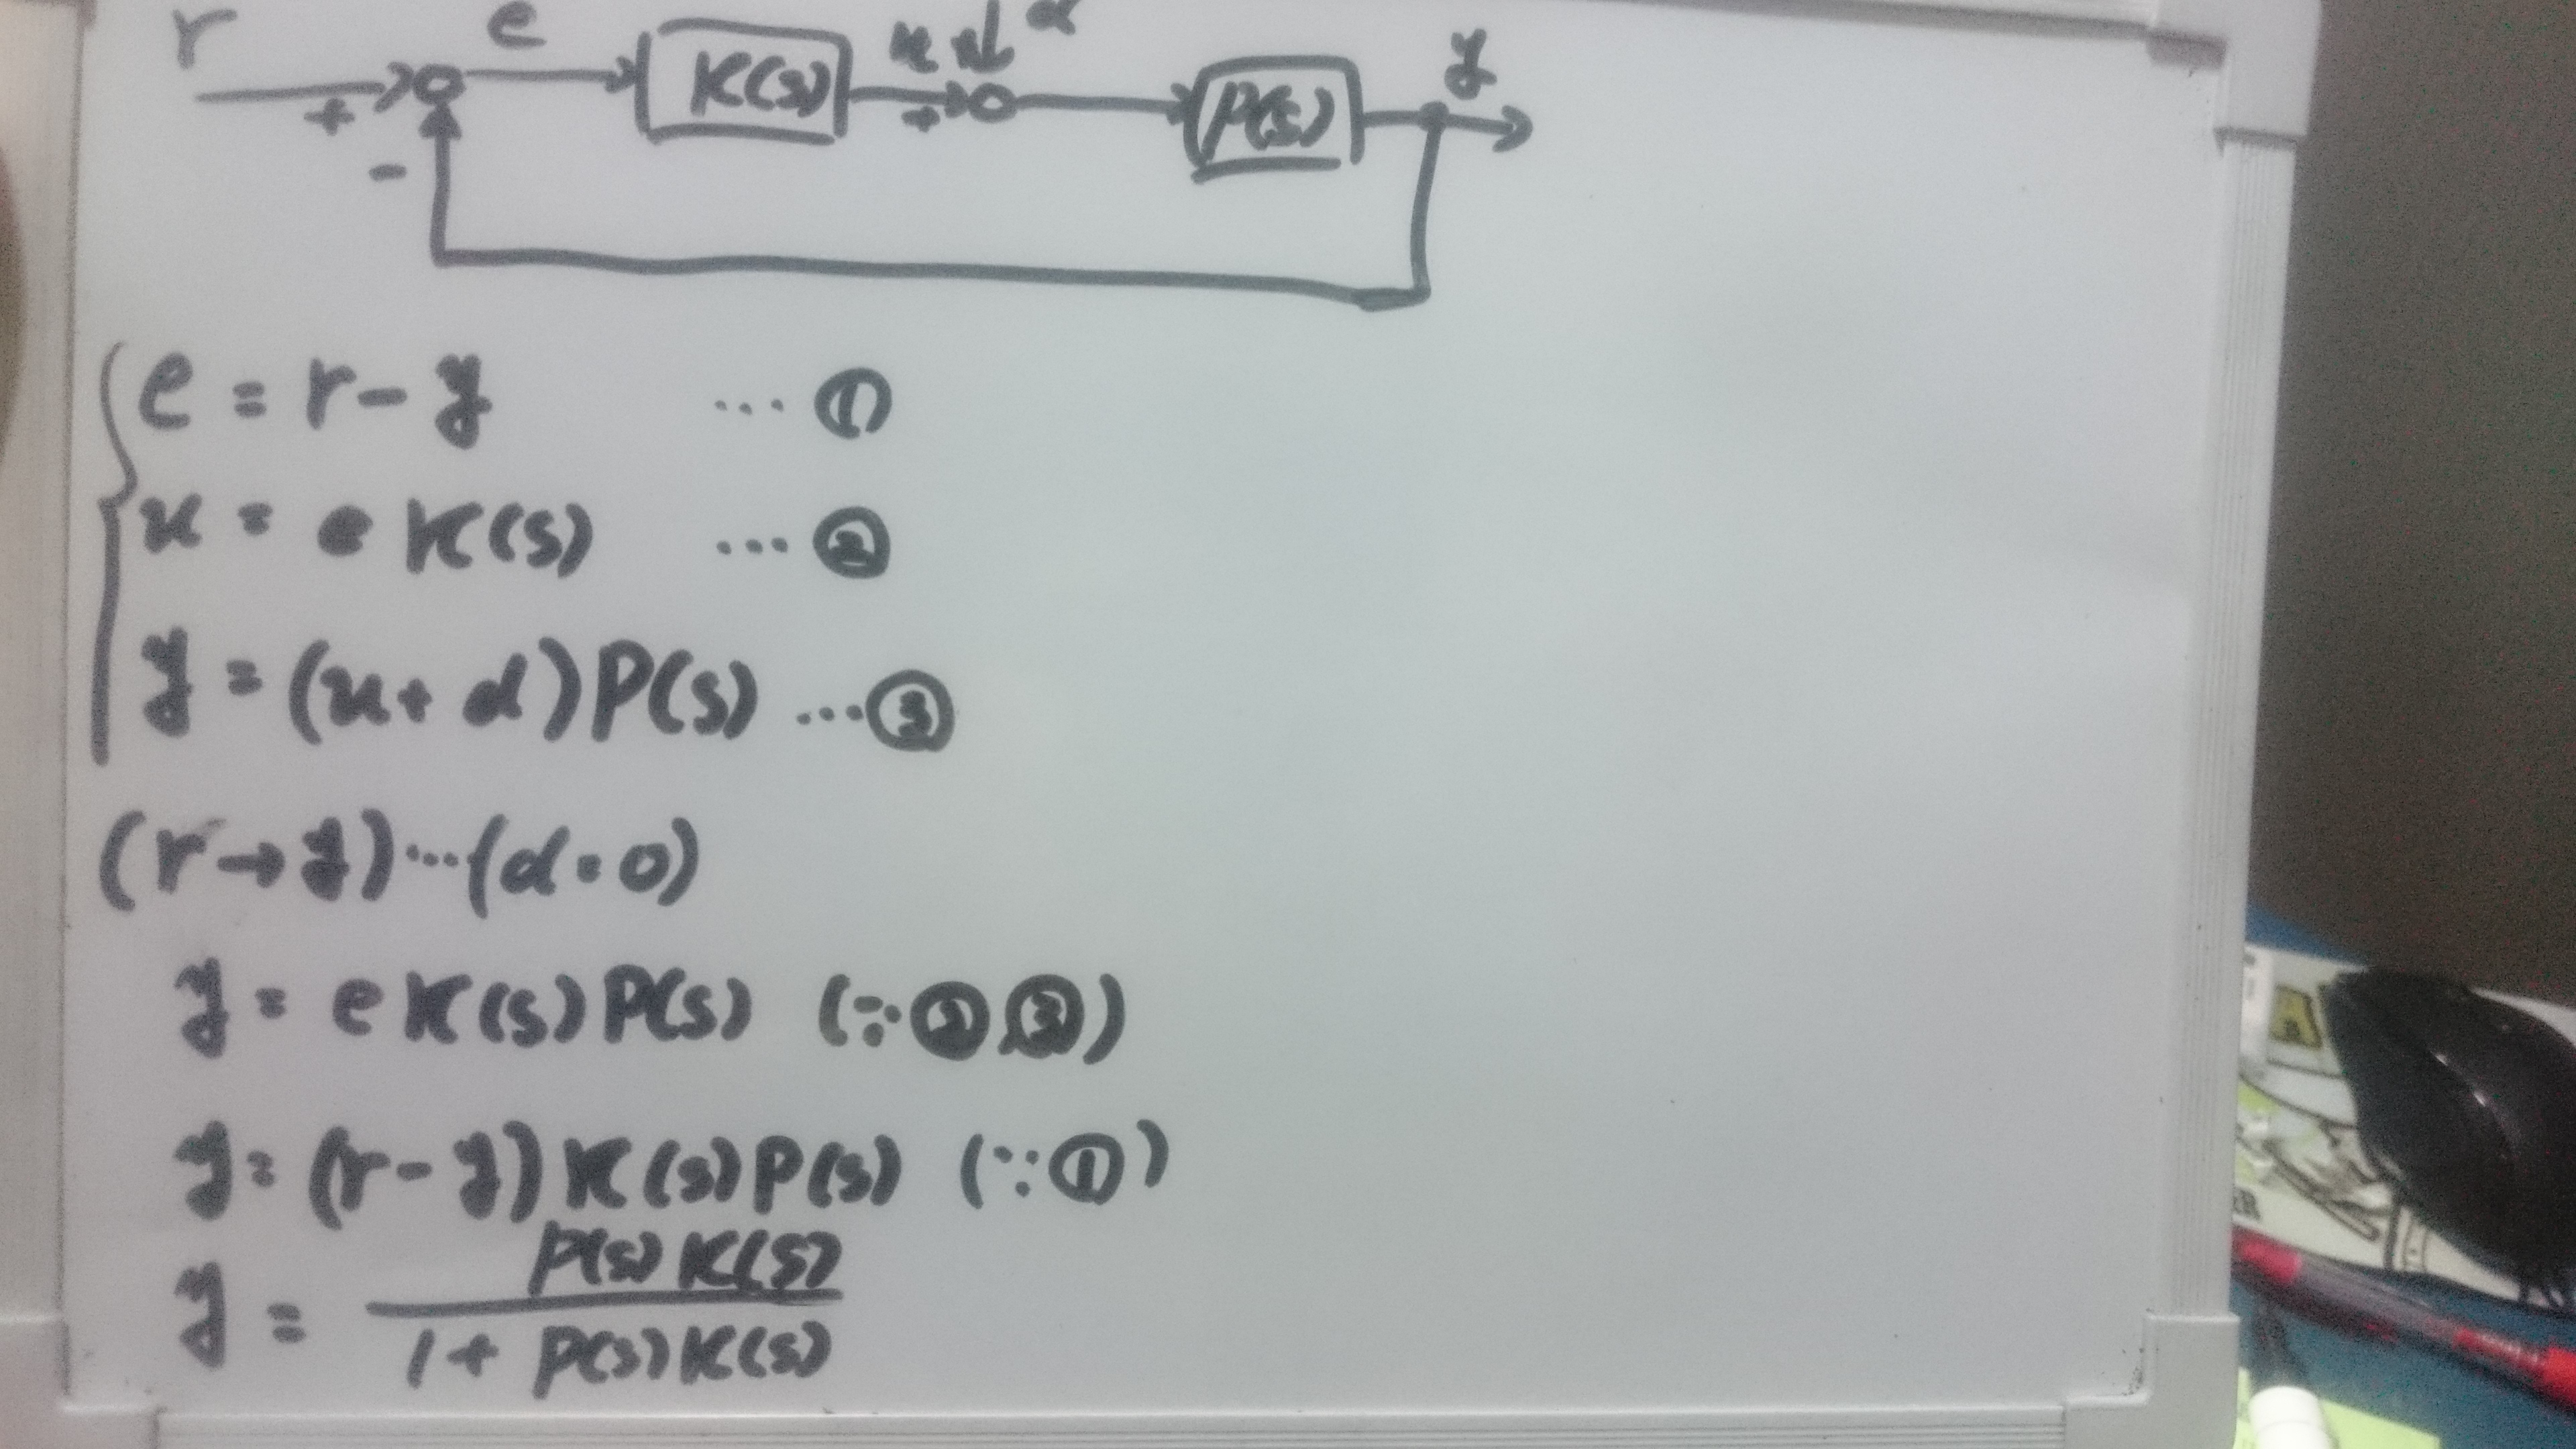 r e K(s) u d P(s) y
+ +
-
e = r - y … ①
u = e K(s) … ②
y = (u + d) P(s) … ③
(r → y) … (d = 0)
y = e K(s) P(s) (∵ ② ③)
y = (r - y) K(s) P(s) (∵ ①)
P(s) K(s)
y =
1 + P(s) K(s)